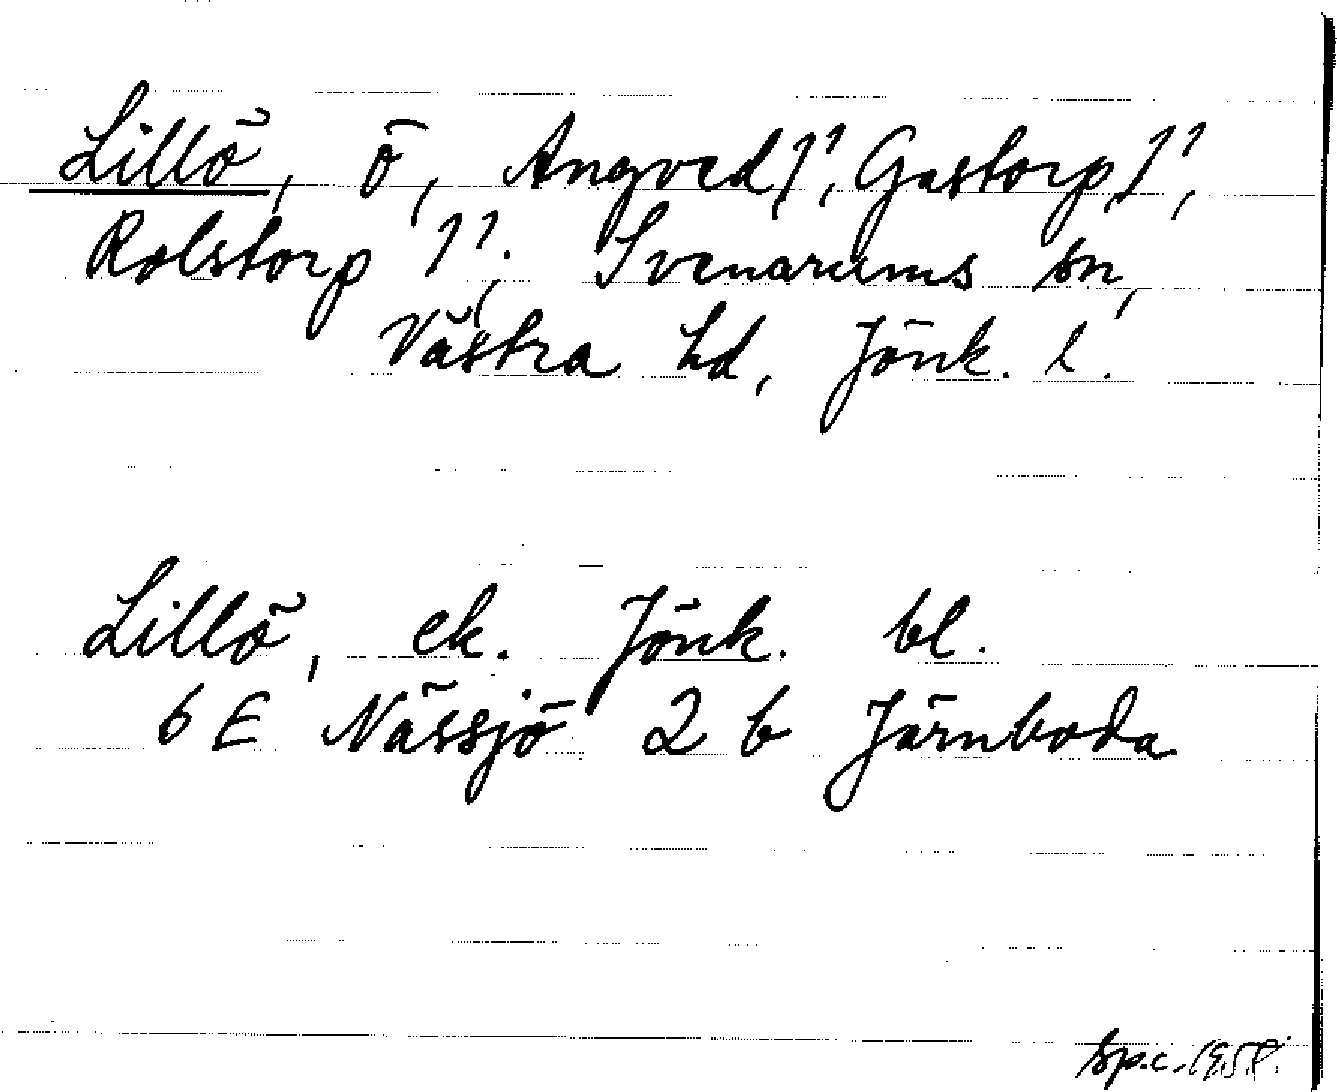 Lillö, ö, Angved 1¹, Gastorp 1¹,
Rolstorp 1¹. Svenarums sn,
Västra hd, Jönk. l.
Lillö, ek. Jönk. bl.
6 E Nässjö 2 b Järnboda
sp.c. 1958.